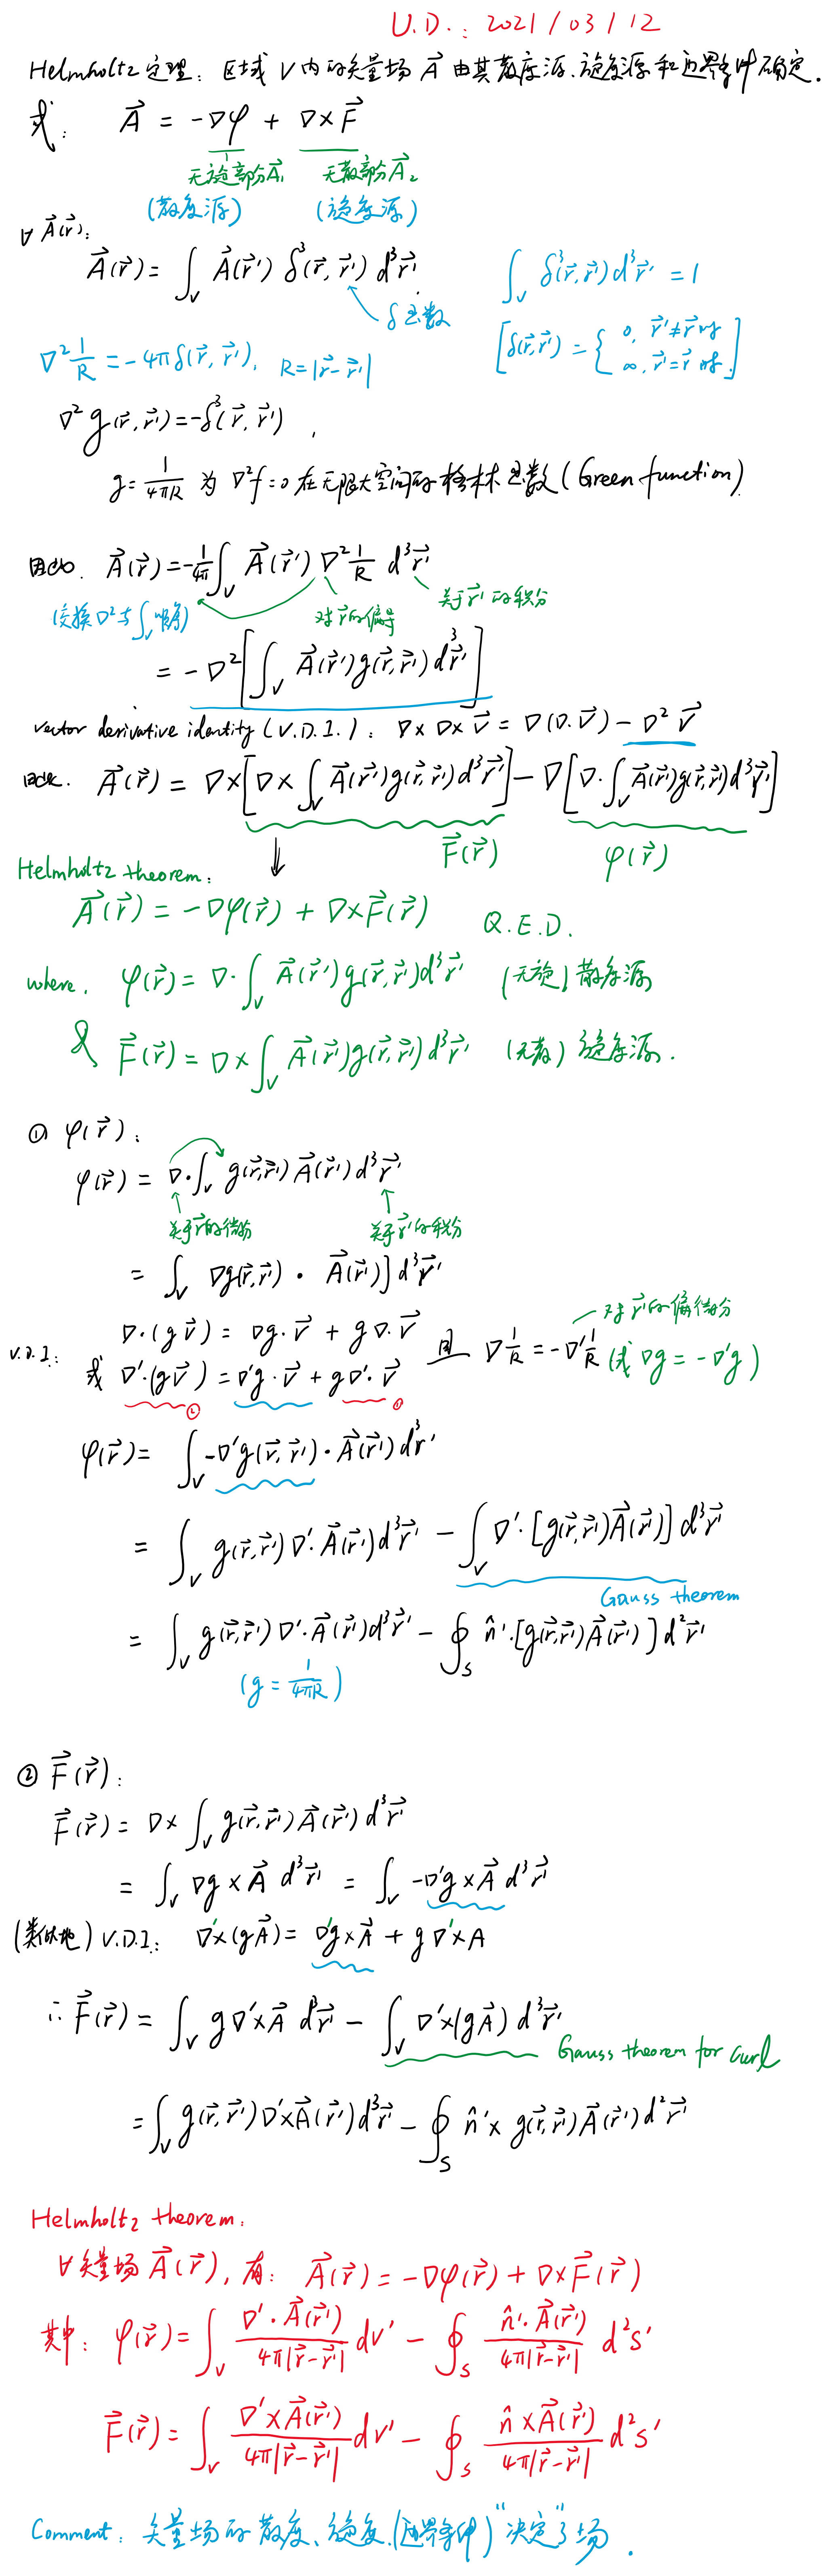 U.D.: 2021/03/12
Helmholtz 定理: 区域 V 内的矢量场 A⃗ 由其散度源、旋度源和边界条件确定.
或: A⃗ = -∇φ + ∇×F⃗
无旋部分A⃗₁ 无散部分A⃗₂
(散度源) (旋度源)
∀ A⃗(r⃗):
A⃗(r⃗) = ∫_V A⃗(r⃗') δ³(r⃗, r⃗') d³r⃗' ∫_V δ³(r⃗,r⃗')d³r⃗' = 1
δ函数 [δ(r⃗,r⃗') = { 0, r⃗'≠r⃗ 时 ∞, r⃗'=r⃗ 时. ]
∇² 1/R = -4πδ(r⃗, r⃗'), R=|r⃗-r⃗'|
∇² g(r⃗,r⃗') = -δ³(r⃗, r⃗'),
g = 1/4πR 为 ∇²f=0 在无限大空间的格林函数 (Green function).
因此. A⃗(r⃗) = -1/4π ∫_V A⃗(r⃗') ∇² 1/R d³r⃗'
(交换∇²与∫_V顺序) 对r⃗的偏导 关于r⃗'的积分
= -∇²[∫_V A⃗(r⃗')g(r⃗,r⃗')d³r⃗']
vector derivative identity (V.D.I.): ∇×∇×V⃗ = ∇(∇·V⃗) - ∇²V⃗
因此. A⃗(r⃗) = ∇×[∇×∫_V A⃗(r⃗')g(r⃗,r⃗')d³r⃗'] - ∇[∇·∫_V A⃗(r⃗')g(r⃗,r⃗')d³r⃗']
⇓ F⃗(r⃗) φ(r⃗)
Helmholtz theorem:
A⃗(r⃗) = -∇φ(r⃗) + ∇×F⃗(r⃗) Q.E.D.
where, φ(r⃗) = ∇·∫_V A⃗(r⃗')g(r⃗,r⃗')d³r⃗' (无旋) 散度源
& F⃗(r⃗) = ∇×∫_V A⃗(r⃗')g(r⃗,r⃗')d³r⃗' (无散) 旋度源.
① φ(r⃗):
φ(r⃗) = ∇·∫_V g(r⃗,r⃗')A⃗(r⃗')d³r⃗'
关于r⃗的微分 关于r⃗'的积分
= ∫_V ∇g(r⃗,r⃗') · A⃗(r⃗')]d³r⃗'
对r⃗'的偏微分
V.D.I: ∇·(gV⃗) = ∇g·V⃗ + g∇·V⃗
或 ∇'·(gV⃗) = ∇'g·V⃗ + g∇'·V⃗ 且 ∇1/R = -∇'1/R (或 ∇g = -∇'g)
② ①
φ(r⃗) = ∫_V -∇'g(r⃗,r⃗')·A⃗(r⃗')d³r'
= ∫_V g(r⃗,r⃗')∇'·A⃗(r⃗')d³r⃗' - ∫_V ∇'·[g(r⃗,r⃗')A⃗(r⃗')]d³r⃗'
Gauss theorem
= ∫_V g(r⃗,r⃗')∇'·A⃗(r⃗')d³r⃗' - ∮_S n̂'·[g(r⃗,r⃗')A⃗(r⃗')]d²r⃗'
(g = 1/4πR)
② F⃗(r⃗):
F⃗(r⃗) = ∇×∫_V g(r⃗,r⃗')A⃗(r⃗')d³r⃗'
= ∫_V ∇g×A⃗ d³r⃗' = ∫_V -∇'g×A⃗ d³r⃗'
(类似地) V.D.I.: ∇'×(gA⃗) = ∇'g×A⃗ + g∇'×A
∴ F⃗(r⃗) = ∫_V g∇'×A⃗ d³r⃗' - ∫_V ∇'×(gA⃗) d³r⃗'
Gauss theorem for curl
= ∫_V g(r⃗,r⃗')∇'×A⃗(r⃗')d³r⃗' - ∮_S n̂'× g(r⃗,r⃗')A⃗(r⃗')d²r⃗'
Helmholtz theorem:
∀矢量场 A⃗(r⃗), 有: A⃗(r⃗) = -∇φ(r⃗) + ∇×F⃗(r⃗)
其中: φ(r⃗) = ∫_V ∇'·A⃗(r⃗')/4π|r⃗-r⃗'| dv' - ∮_S n̂'·A⃗(r⃗')/4π|r⃗-r⃗'| d²s'
F⃗(r⃗) = ∫_V ∇'×A⃗(r⃗')/4π|r⃗-r⃗'| dv' - ∮_S n̂×A⃗(r⃗')/4π|r⃗-r⃗'| d²s'
Comment: 矢量场的散度、旋度、(边界条件) "决定"了场.